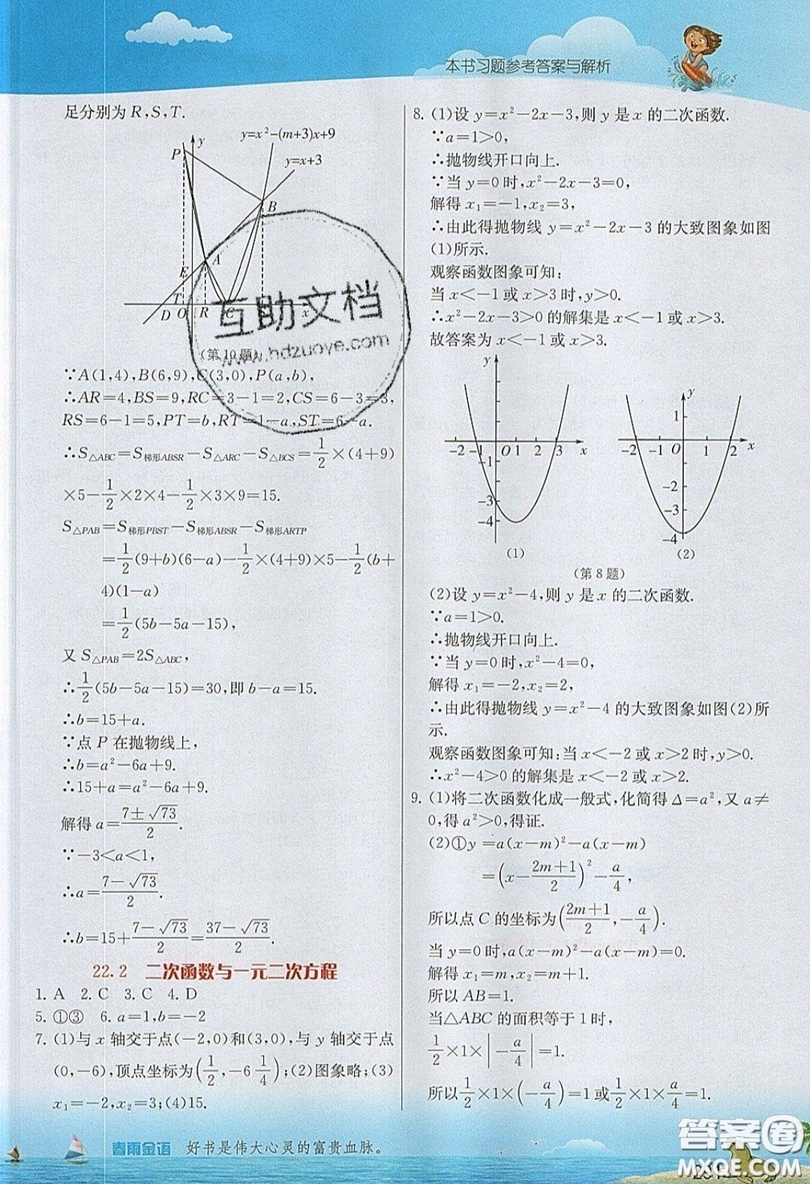 本书习题参考答案与解析
足分别为 R,S,T.
y
y=x²-(m+3)x+9
y=x+3
P
B
A
E
T
D O R C x
(第10题)
∵A(1,4),B(6,9),C(3,0),P(a,b),
∴AR=4,BS=9,RC=3-1=2,CS=6-3=3,
RS=6-1=5,PT=b,RT=1-a,ST=6-a.
∴S△ABC=S梯形ABSR-S△ARC-S△BCS=1/2×(4+9)
×5-1/2×2×4-1/2×3×9=15.
S△PAB=S梯形PBST-S梯形ABSR-S梯形ARTP
=1/2(9+b)(6-a)-1/2×(4+9)×5-1/2(b+
4)(1-a)
=1/2(5b-5a-15),
又 S△PAB=2S△ABC,
∴1/2(5b-5a-15)=30,即b-a=15.
∴b=15+a.
∵点 P 在抛物线上,
∴b=a²-6a+9.
∴15+a=a²-6a+9.
解得a=(7±√73)/2.
∵-3<a<1,
∴a=(7-√73)/2.
∴b=15+(7-√73)/2=(37-√73)/2.
22.2 二次函数与一元二次方程
1. A 2. C 3. C 4. D
5. ①③ 6. a=1,b=-2
7. (1)与 x 轴交于点(-2,0)和(3,0),与 y 轴交于点
(0,-6),顶点坐标为(1/2,-6 1/4);(2)图象略;(3)
x₁=-2,x₂=3;(4)15.
8. (1)设 y=x²-2x-3,则 y 是 x 的二次函数.
∵a=1>0,
∴抛物线开口向上.
∵当 y=0 时,x²-2x-3=0,
解得 x₁=-1,x₂=3,
∴由此得抛物线 y=x²-2x-3 的大致图象如图
(1)所示.
观察函数图象可知:
当 x<-1 或 x>3 时,y>0.
∴x²-2x-3>0 的解集是 x<-1 或 x>3.
故答案为 x<-1 或 x>3.
y
-2 -1 O 1 2 3 x
-1
-3
-4
(1)
y
1
-2 -1 O 1 2 x
-2
-3
-4
(2)
(第8题)
(2)设 y=x²-4,则 y 是 x 的二次函数.
∵a=1>0.
∴抛物线开口向上.
∵当 y=0 时,x²-4=0,
解得 x₁=-2,x₂=2,
∴由此得抛物线 y=x²-4 的大致图象如图(2)所
示.
观察函数图象可知:当 x<-2 或 x>2 时,y>0.
∴x²-4>0 的解集是 x<-2 或 x>2.
9. (1)将二次函数化成一般式,化简得 Δ=a²,又 a≠
0,得 a²>0,得证.
(2)①y=a(x-m)²-a(x-m)
=(x-(2m+1)/2)²-a/4,
所以点 C 的坐标为((2m+1)/2,-a/4).
当 y=0 时,a(x-m)²-a(x-m)=0.
解得 x₁=m,x₂=m+1.
所以 AB=1.
当△ABC 的面积等于 1 时,
1/2×1×|-a/4|=1.
所以1/2×1×(-a/4)=1或1/2×1×a/4=1.
春雨金语 好书是伟大心灵的富贵血脉。
互助文档
www.hdzuoye.com
答案圈
MXQE.COM